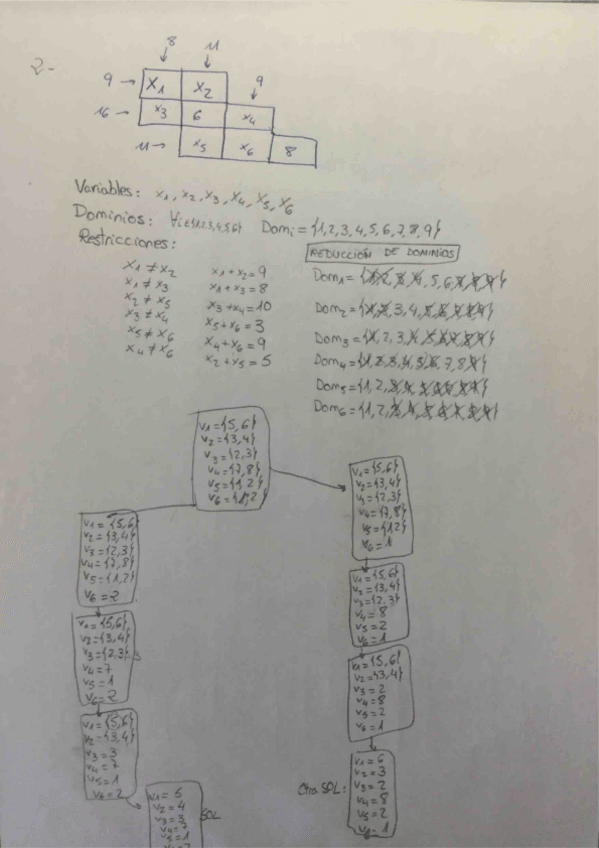 2-
8
11
9 → X1 X2
9
16 → x3 6 x4
11 → x5 x6 8
Variables: x1, x2, x3, x4, x5, x6
Dominios: ∀i∈{1,2,3,4,5,6} Domi = {1,2,3,4,5,6,7,8,9}
Restricciones:
REDUCCIÓN DE DOMINIOS
X1 ≠ x2 x1 + x2 = 9
x1 ≠ x3 x1 + x3 = 8
x2 ≠ x5 x3 + x4 = 10
x3 ≠ x4 x5 + x6 = 3
x5 ≠ x6 x4 + x6 = 9
x4 ≠ x6 x2 + x5 = 5
Dom1 = {1,2,3,4,5,6,7,8,9}
Dom2 = {1,2,3,4,5,6,7,8,9}
Dom3 = {1,2,3,4,5,6,7,8,9}
Dom4 = {1,2,3,4,5,6,7,8,9}
Dom5 = {1,2,3,4,5,6,7,8,9}
Dom6 = {1,2,3,4,5,6,7,8,9}
V1 = {5,6}
V2 = {3,4}
V3 = {2,3}
V4 = {7,8}
V5 = {1,2}
V6 = {1,2}
V1 = {5,6}
V2 = {3,4}
V3 = {2,3}
V4 = {7,8}
V5 = {1,2}
V6 = 2
V1 = {5,6}
V2 = {3,4}
V3 = {2,3}
V4 = 7
V5 = 1
V6 = 2
V1 = {5,6}
V2 = {3,4}
V3 = 3
V4 = 7
V5 = 1
V6 = 2
V1 = 5
V2 = 4
V3 = 3
V4 = 7
V5 = 1
SOL
V1 = {5,6}
V2 = {3,4}
V3 = {2,3}
V4 = {7,8}
V5 = {1,2}
V6 = 1
V1 = {5,6}
V2 = {3,4}
V3 = {2,3}
V4 = 8
V5 = 2
V6 = 1
V1 = {5,6}
V2 = {3,4}
V3 = 2
V4 = 8
V5 = 2
V6 = 1
Otra SOL:
V1 = 6
V2 = 3
V3 = 2
V4 = 8
V5 = 2
V6 = 1